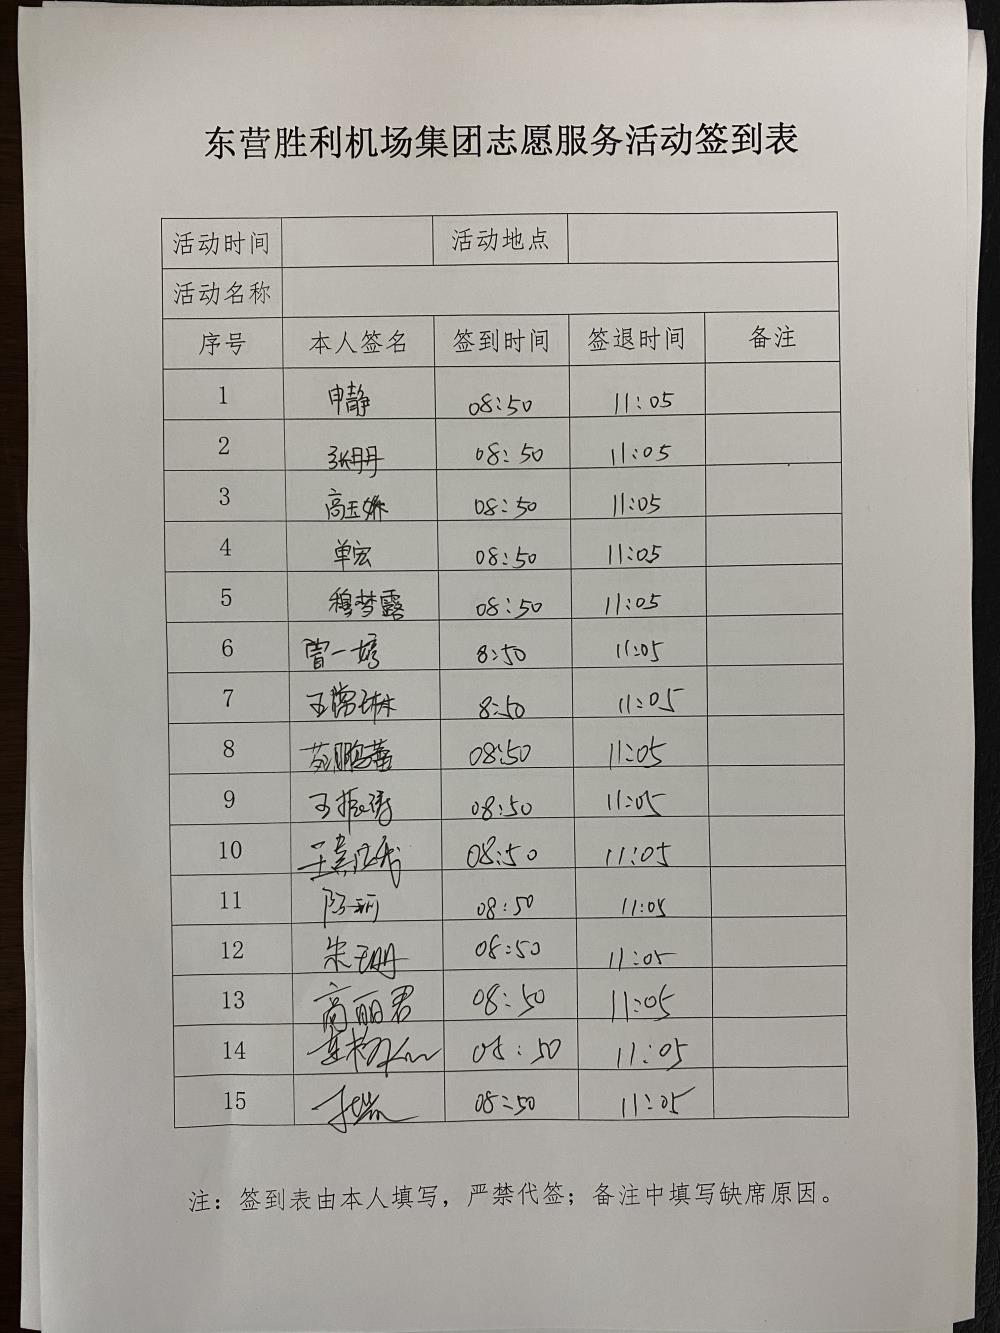 东营胜利机场集团志愿服务活动签到表
活动时间 活动地点
活动名称
序号 本人签名 签到时间 签退时间 备注
1 申静 08:50 11:05
2 张丹丹 08:50 11:05
3 高玉 08:50 11:05
4 单宏 08:50 11:05
5 穆梦露 08:50 11:05
6 曾一婷 8:50 11:05
7 王 琳 8:50 11:05
8 苑鹏蕾 08:50 11:05
9 王振涛 08:50 11:05
10 王 08:50 11:05
11 陈 08:50 11:05
12 朱 08:50 11:05
13 高丽君 08:50 11:05
14 08:50 11:05
15 08:50 11:05
注：签到表由本人填写，严禁代签；备注中填写缺席原因。